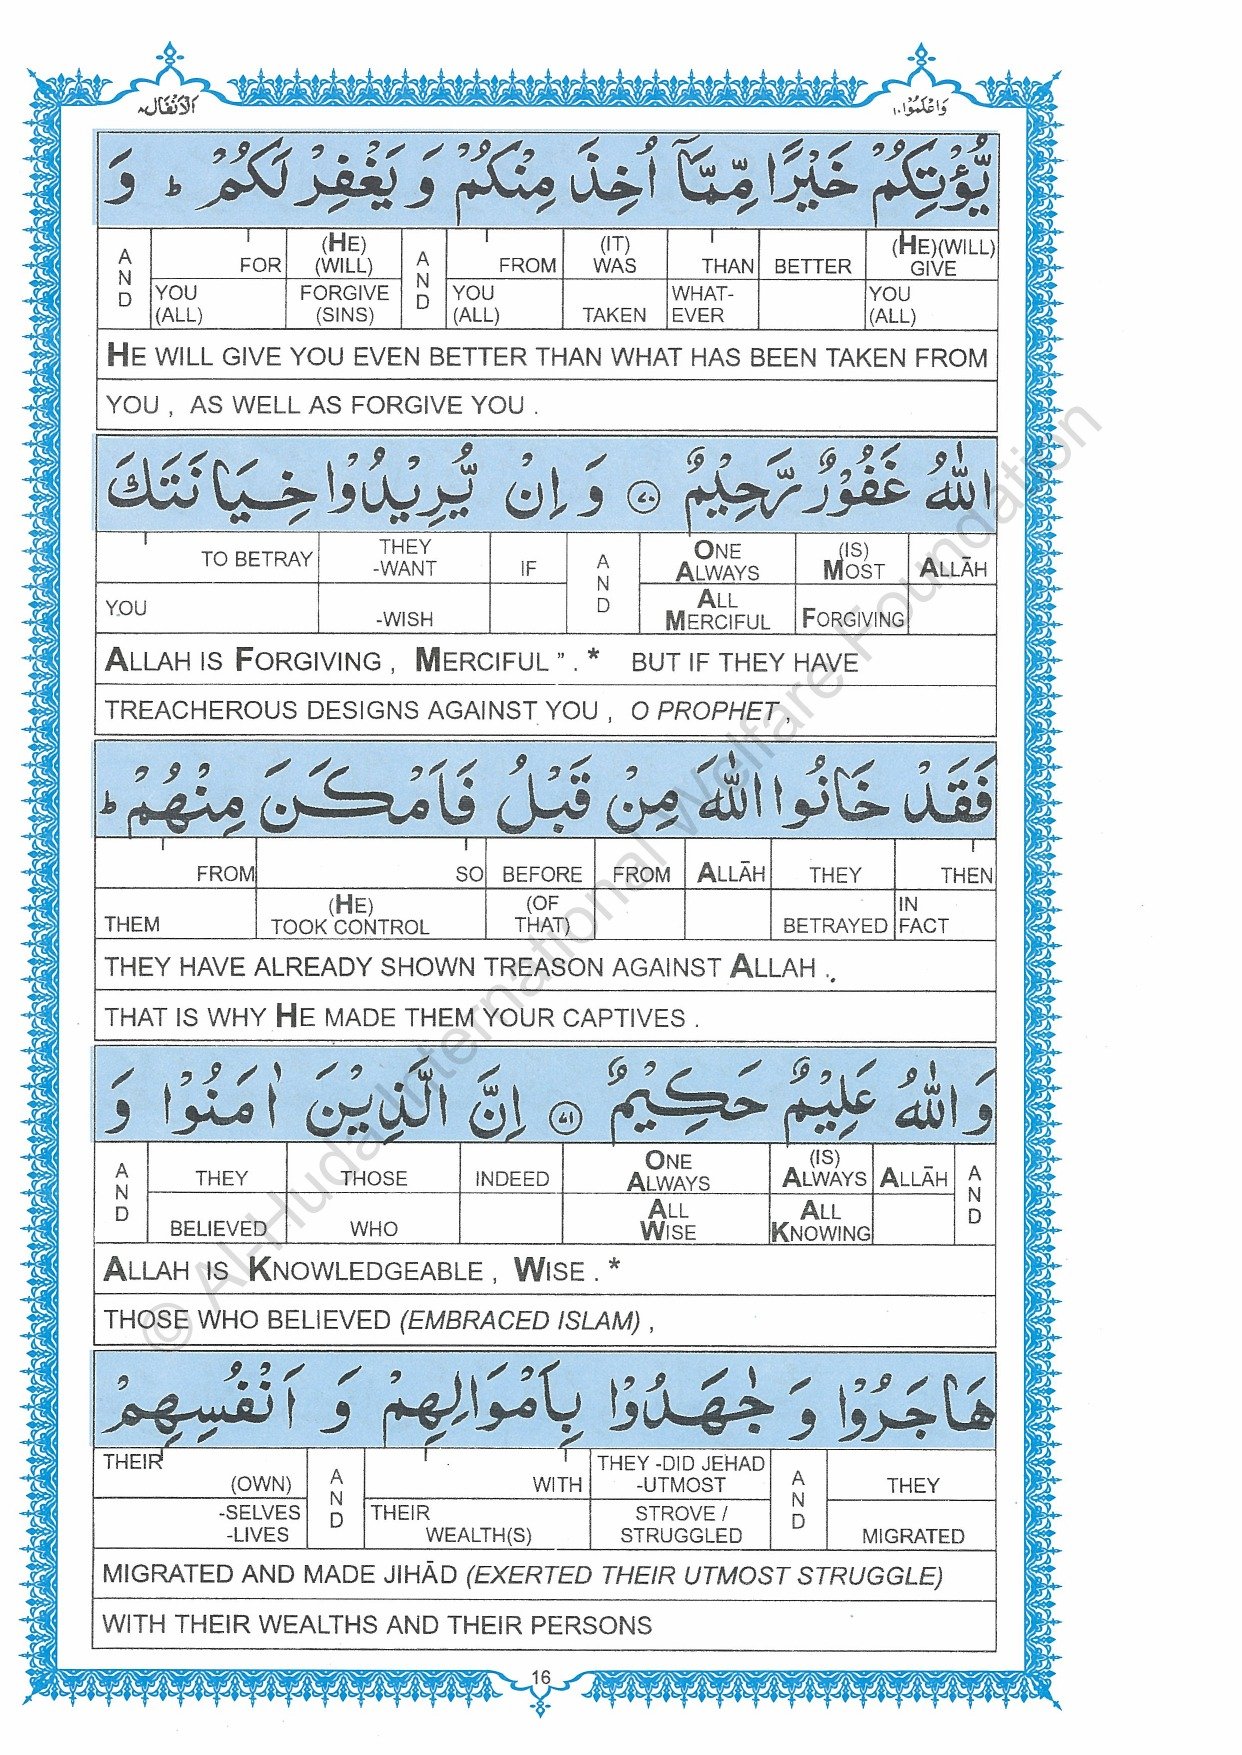 الانفال ٨
واعلموا ١٠
يُّؤْتِكُمْ خَيْرًا مِّمَّآ اُخِذَ مِنْكُمْ وَ يَغْفِرْ لَكُمْ ؕ وَ
AND FOR (HE) (WILL) AND FROM (IT) WAS THAN BETTER (HE)(WILL) GIVE
YOU (ALL) FORGIVE (SINS) YOU (ALL) TAKEN WHAT-EVER YOU (ALL)
HE WILL GIVE YOU EVEN BETTER THAN WHAT HAS BEEN TAKEN FROM
YOU , AS WELL AS FORGIVE YOU .
اللّٰهُ غَفُوْرٌ رَّحِيْمٌ ﴿٧٠﴾ وَ اِنْ يُّرِيْدُوْا خِيَانَتَكَ
TO BETRAY THEY -WANT IF AND ONE ALWAYS (IS) MOST ALLĀH
YOU -WISH ALL MERCIFUL FORGIVING
ALLAH IS FORGIVING , MERCIFUL ” . * BUT IF THEY HAVE
TREACHEROUS DESIGNS AGAINST YOU , O PROPHET ,
فَقَدْ خَانُوا اللّٰهَ مِنْ قَبْلُ فَاَمْكَنَ مِنْهُمْ ؕ
FROM SO BEFORE FROM ALLĀH THEY THEN
THEM (HE) TOOK CONTROL (OF THAT) BETRAYED IN FACT
THEY HAVE ALREADY SHOWN TREASON AGAINST ALLAH .
THAT IS WHY HE MADE THEM YOUR CAPTIVES .
وَ اللّٰهُ عَلِيْمٌ حَكِيْمٌ ﴿٧١﴾ اِنَّ الَّذِيْنَ اٰمَنُوْا وَ
AND THEY THOSE INDEED ONE ALWAYS (IS) ALWAYS ALLĀH AND
BELIEVED WHO ALL WISE ALL KNOWING
ALLAH IS KNOWLEDGEABLE , WISE . *
THOSE WHO BELIEVED (EMBRACED ISLAM) ,
هَاجَرُوْا وَ جٰهَدُوْا بِاَمْوَالِهِمْ وَ اَنْفُسِهِمْ
THEIR (OWN) AND WITH THEY -DID JEHAD -UTMOST AND THEY
-SELVES -LIVES THEIR WEALTH(S) STROVE / STRUGGLED MIGRATED
MIGRATED AND MADE JIHĀD (EXERTED THEIR UTMOST STRUGGLE)
WITH THEIR WEALTHS AND THEIR PERSONS
16
© Al-Huda International Welfare Foundation